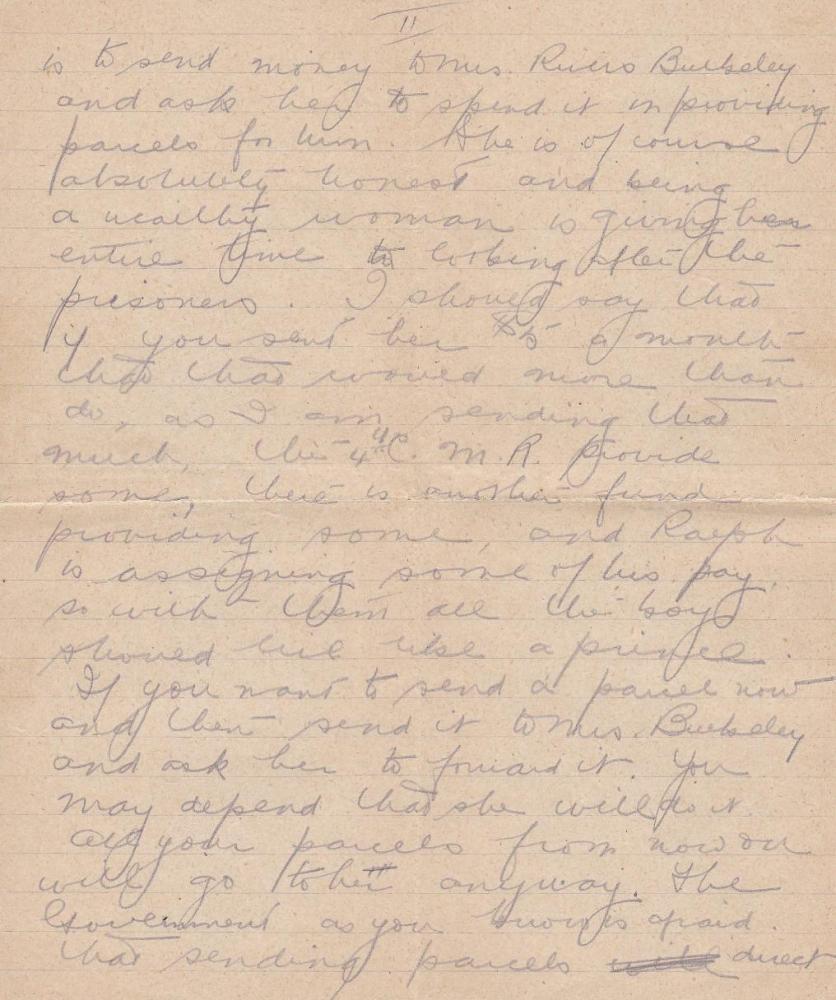 11
is to send money to Mrs. Rivers Bulkeley
and ask her to spend it in providing
parcels for him. She is of course
absolutely honest and being
a wealthy woman is giving her
entire time to looking after the
prisoners. I should say that
if you sent her $5 a month
that that would more than
do, as I am sending that
much, the 4th C. M. R. provide
some, there is another fund
providing some, and Ralph
is assigning some of his pay,
so with them all the boy
should live like a prince.
If you want to send a parcel now
and then send it to Mrs. Bulkeley
and ask her to forward it. You
may depend that she will do it.
All your parcels from now on
will go to her anyway. The
Government as you know is afraid
that sending parcels direct